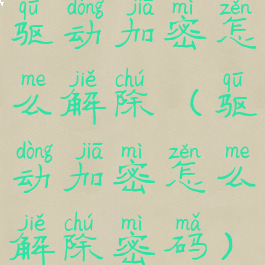 qū dòng jiā mì zěn
驱动加密怎
me jiě chú qū
么解除（驱
dòng jiā mì zěn me
动加密怎么
jiě chú mì mǎ
解除密码）